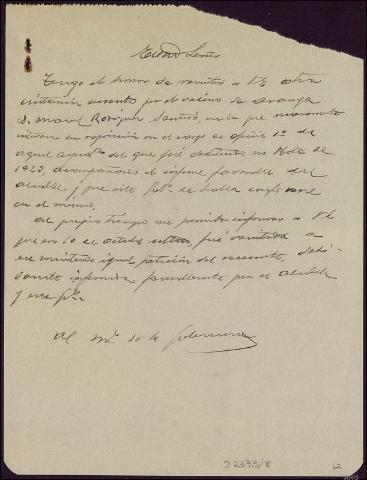 Excmo Señor
Tengo el honor de remitir a VE otra
instancia suscrita por el vecino de Aranga
D. Manuel Rodríguez Santiso, en la que nuevamente
interesa su reposición en el cargo de oficial 1º de
aquel ayuntº del que fué destituido en de
1923, acompañada del informe favorable del
alcalde y que este Gobº se halla conforme
en el mismo.
Al propio tiempo me permito informar a VE
que en 10 de octubre último, fué remitida a
ese ministerio igual petición del recurrente,
informada favorablemente por el alcalde
y este Gobº
Al mº de la Gobernación
32373/8